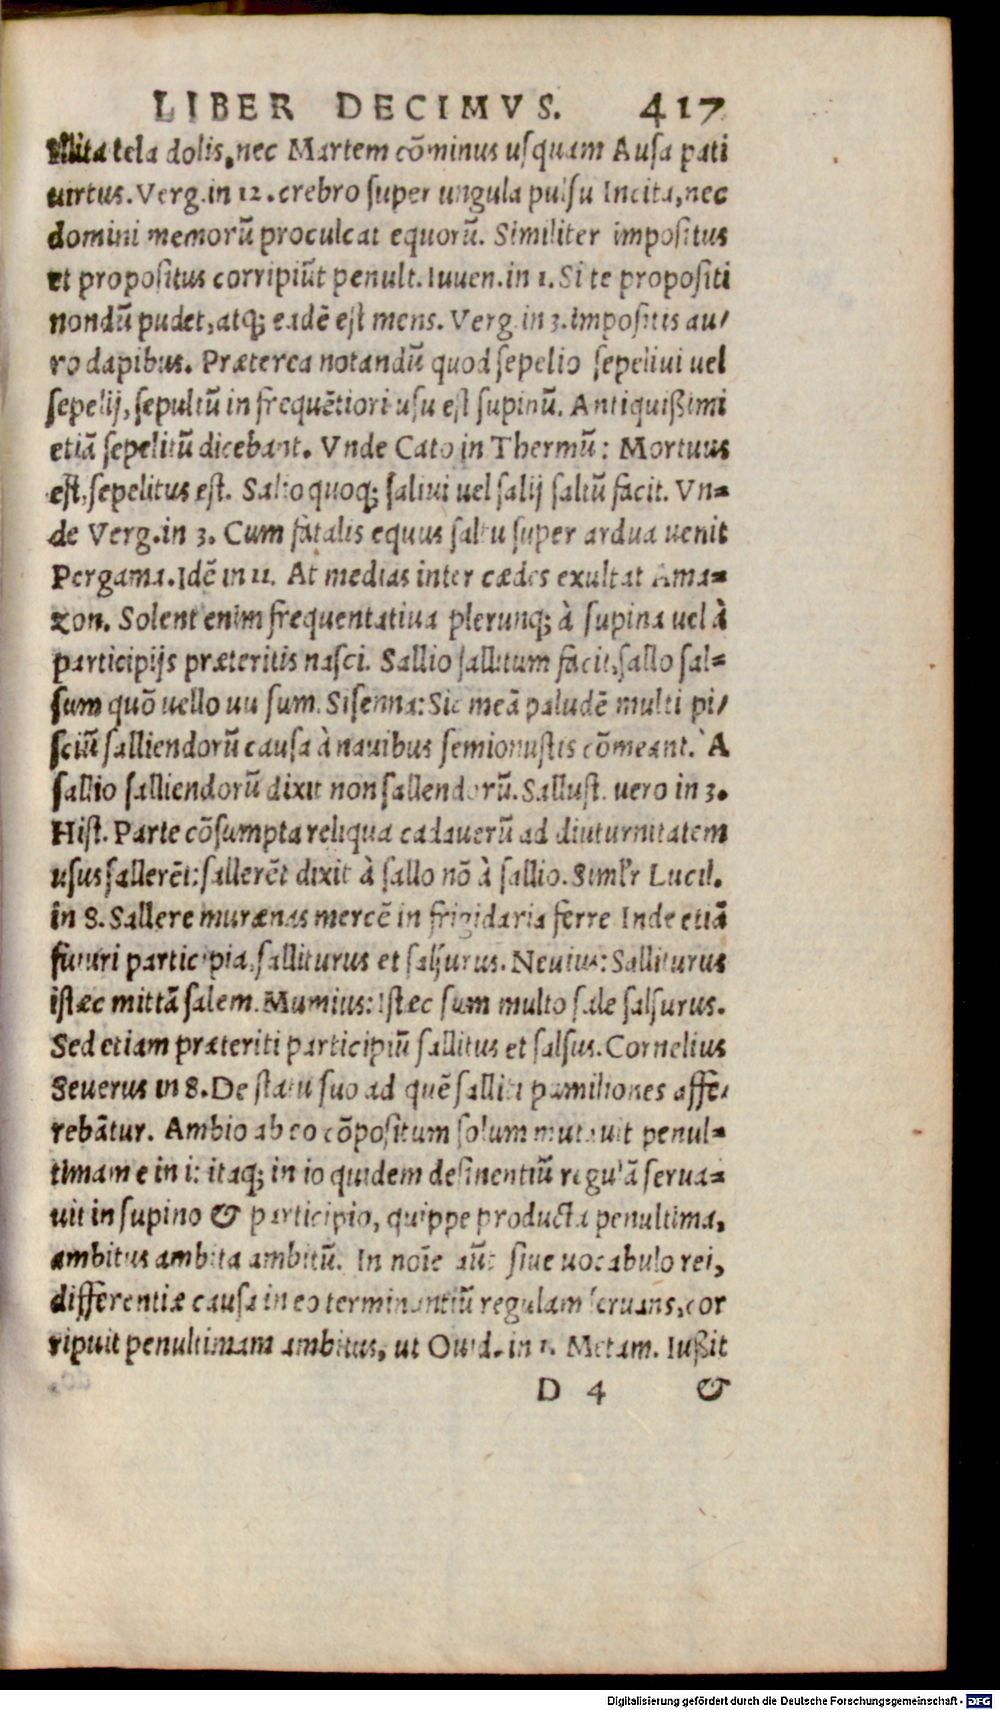 LIBER DECIMVS. 417
Illita tela dolis, nec Martem cōminus usquam Ausa pati
uirtus. Verg. in 12. crebro super ungula pulsu Incita, nec
domini memorū proculcat equorū. Similiter impositus
et propositus corripiūt penult. Iuuen. in 1. Si te propositi
nondū pudet, atq; eadē est mens. Verg. in 3. Impositis au/
ro dapibus. Præterea notandū quod sepelio sepeliui uel
sepelij, sepultū in frequētiori usu est supinū. Antiquißimi
etiā sepelitū dicebant. Vnde Cato in Thermū: Mortuus
est, sepelitus est. Salio quoq; saliui uel salij saltū facit. Vn=
de Verg. in 3. Cum fatalis equus saltu super ardua uenit
Pergama. Idē in 11. At medias inter cædes exultat Ama=
zon. Solent enim frequentatiua plerunq; à supina uel à
participijs præteritis nasci. Sallio sallitum facit, sallo sal=
sum quō uello uusum. Sisenna: Sic meā paludē multi pi/
sciū salliendorū causa à nauibus semionustis cōmeant. À
sallio salliendorū dixit non sallendorū. Sallust. uero in 3.
Hist. Parte cōsumpta reliqua cadauerū ad diuturnitatem
usus sallerēt: sallerēt dixit à sallo nō à sallio. Simlr Lucil.
in 8. Sallere murænas mercē in frigidaria ferre Inde etiā
futuri participia, salliturus et salsurus. Neuius: Salliturus
istæc mittā salem. Mumius: Istæc sum multo sale salsurus.
Sed etiam præteriti participiū sallitus et salsus. Cornelius
Seuerus in 8. De statu suo ad quē salliti pumiliones affe/
rebātur. Ambio ab eo cōpositum solum mutauit penul=
timam e in i: itaq; in io quidem desinentiū regulā serua=
uit in supino & participio, quippe producta penultima,
ambitus ambita ambitū. In noīe aūt siue uocabulo rei,
differentiæ causa in eo terminantiū regulam seruans, cor
ripuit penultimam ambitus, ut Ouid. in 1. Metam. Iußit
D 4 &
Digitalisierung gefördert durch die Deutsche Forschungsgemeinschaft - DFG